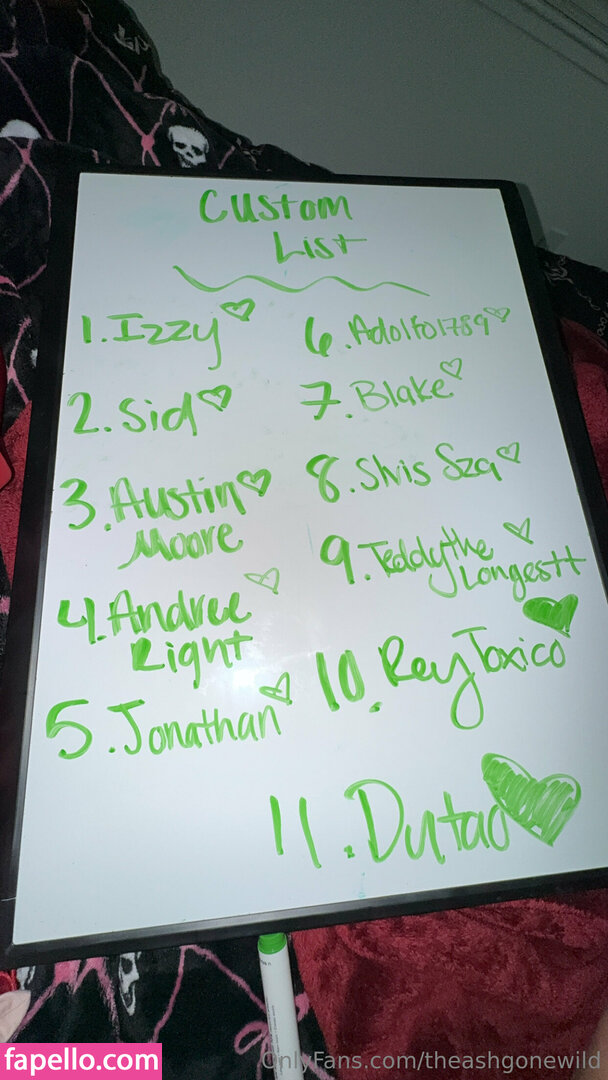 Custom
List
1. Izzy
2. Sid
3. Austin
Moore
4. Andree
Right
5. Jonathan
6. Adolfo1789
7. Blake
8. Slvis Sza
9. Teddythe
Longestt
10. ReyToxico
11. Dutao
fapello.com
OnlyFans.com/theashgonewild